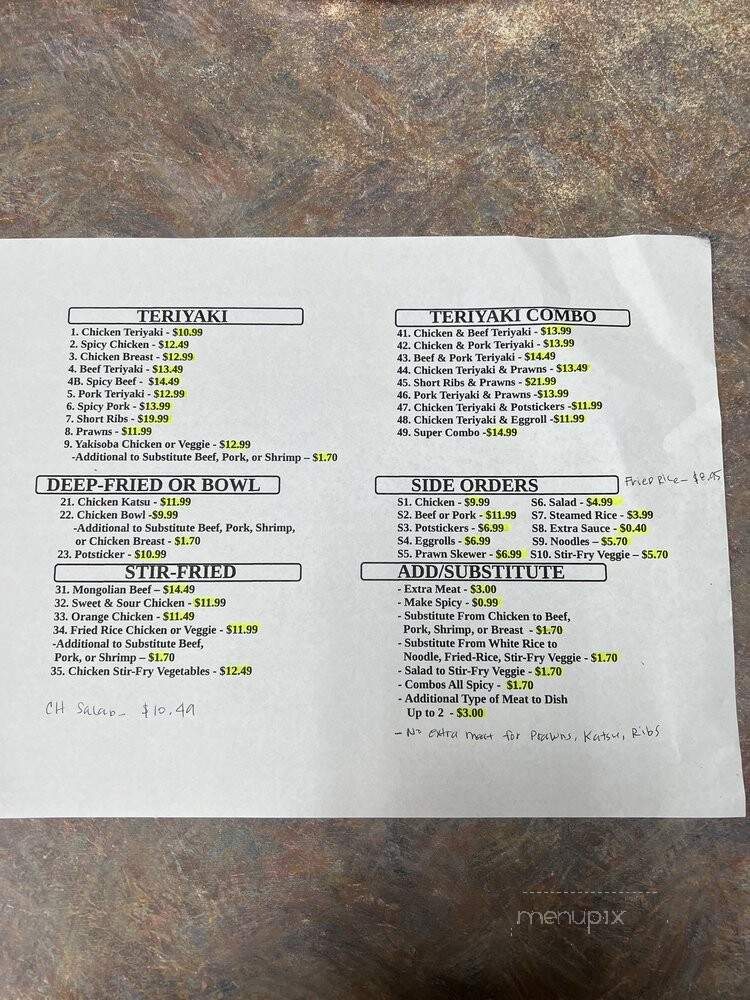 TERIYAKI
1. Chicken Teriyaki - $10.99
2. Spicy Chicken - $12.49
3. Chicken Breast - $12.99
4. Beef Teriyaki - $13.49
4B. Spicy Beef - $14.49
5. Pork Teriyaki - $12.99
6. Spicy Pork - $13.99
7. Short Ribs - $19.99
8. Prawns - $11.99
9. Yakisoba Chicken or Veggie - $12.99
-Additional to Substitute Beef, Pork, or Shrimp – $1.70
DEEP-FRIED OR BOWL
21. Chicken Katsu - $11.99
22. Chicken Bowl -$9.99
-Additional to Substitute Beef, Pork, Shrimp,
or Chicken Breast - $1.70
23. Potsticker - $10.99
STIR-FRIED
31. Mongolian Beef – $14.49
32. Sweet & Sour Chicken - $11.99
33. Orange Chicken - $11.49
34. Fried Rice Chicken or Veggie - $11.99
-Additional to Substitute Beef,
Pork, or Shrimp – $1.70
35. Chicken Stir-Fry Vegetables - $12.49
CH Salad - $10.49
TERIYAKI COMBO
41. Chicken & Beef Teriyaki - $13.99
42. Chicken & Pork Teriyaki - $13.99
43. Beef & Pork Teriyaki - $14.49
44. Chicken Teriyaki & Prawns - $13.49
45. Short Ribs & Prawns - $21.99
46. Pork Teriyaki & Prawns -$13.99
47. Chicken Teriyaki & Potstickers -$11.99
48. Chicken Teriyaki & Eggroll -$11.99
49. Super Combo -$14.99
SIDE ORDERS
Fried Rice -
S1. Chicken - $9.99 S6. Salad - $4.99
S2. Beef or Pork - $11.99 S7. Steamed Rice - $3.99
S3. Potstickers - $6.99 S8. Extra Sauce - $0.40
S4. Eggrolls - $6.99 S9. Noodles – $5.70
S5. Prawn Skewer - $6.99 S10. Stir-Fry Veggie – $5.70
ADD/SUBSTITUTE
- Extra Meat - $3.00
- Make Spicy - $0.99
- Substitute From Chicken to Beef,
Pork, Shrimp, or Breast - $1.70
- Substitute From White Rice to
Noodle, Fried-Rice, Stir-Fry Veggie - $1.70
- Salad to Stir-Fry Veggie - $1.70
- Combos All Spicy - $1.70
- Additional Type of Meat to Dish
Up to 2 - $3.00
- No extra meat for Prawns, Katsu, Ribs
menupix